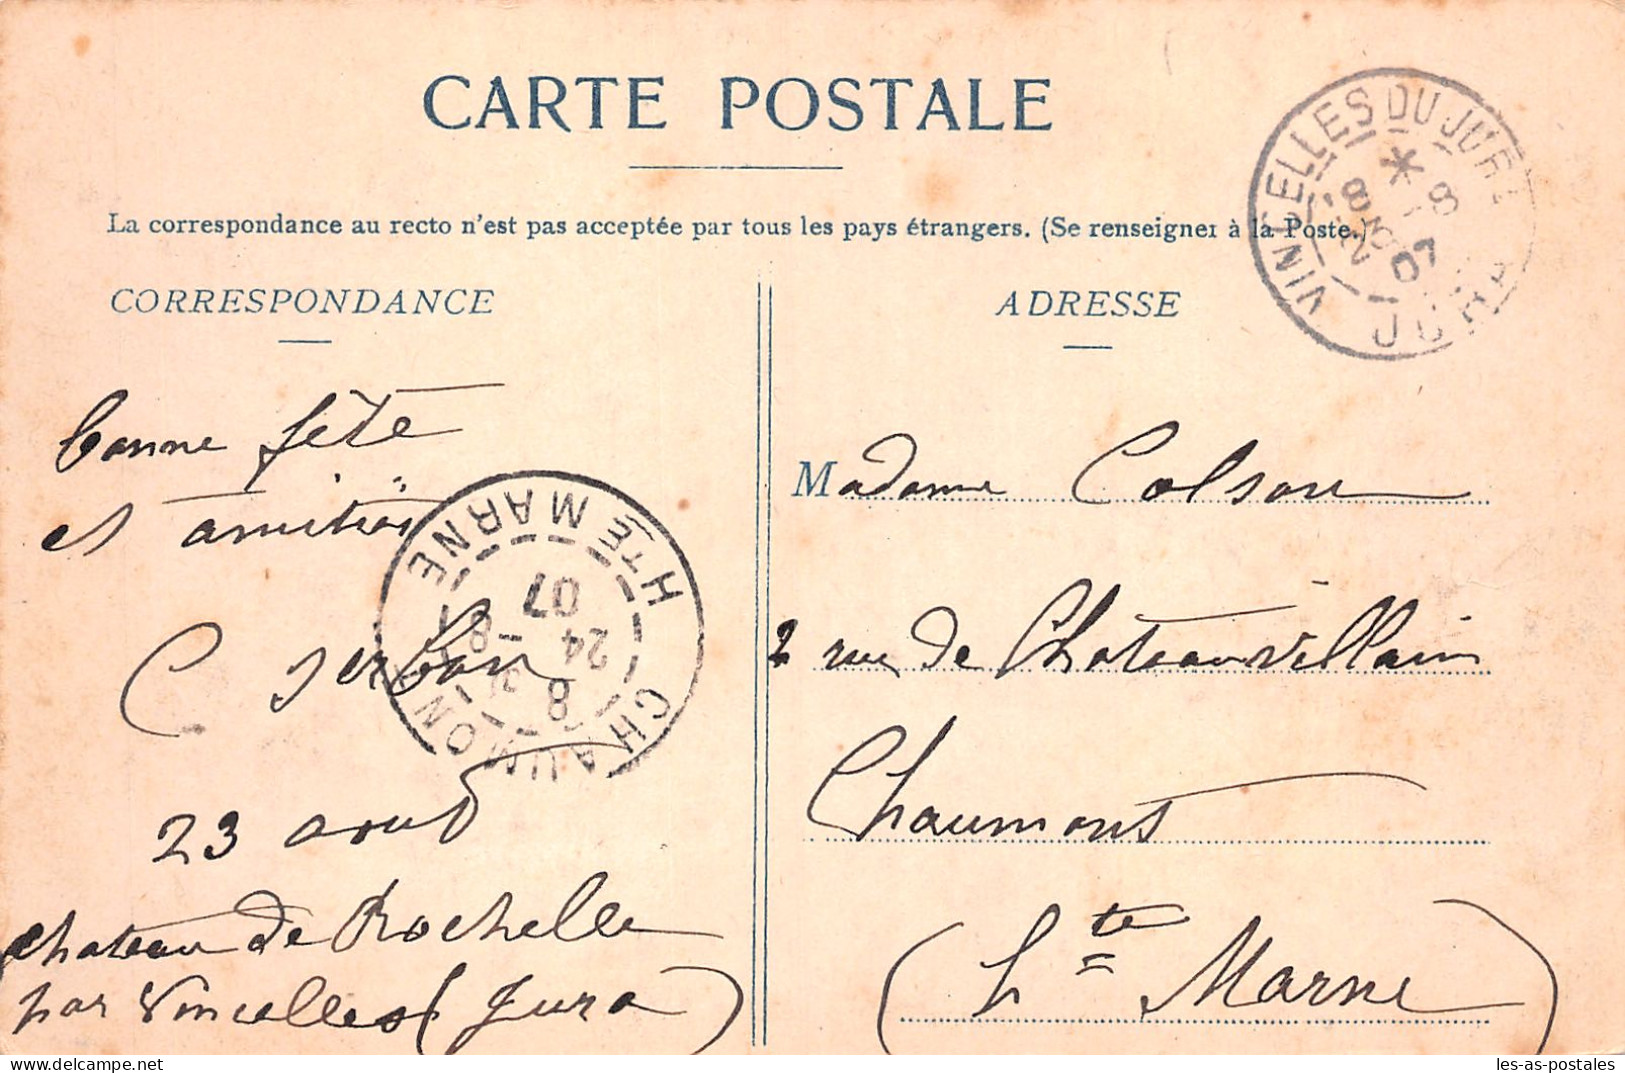 CARTE POSTALE
La correspondance au recto n'est pas acceptée par tous les pays étrangers. (Se renseigner à la Poste.)
CORRESPONDANCE
bonne fête
et amitiés
C Jerbon
23 aout
chateau de Rochelle
par Vincelles (Jura)
ADRESSE
Madame Colson
2 rue de Chateauvillain
Chaumont
(Hte Marne)
VINCELLES DU JURA
JURA
8 -8
07
CHAUMONT
HTE MARNE
8
24 -8
07
les-as-postales